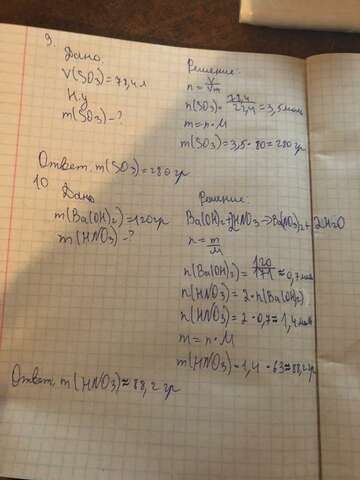 9.
Дано:
V(SO₃)=78,4 л
Н.у
m(SO₃)-?
Решение:
n = V/Vm
n(SO₃)= 78,4/22,4 = 3,5 моль
m=n·M
m(SO₃)=3,5·80=280 гр
Ответ: m(SO₃)=280 гр
10
Дано
m(Ba(OH)₂)=120гр
m(HNO₃)-?
Решение:
Ba(OH)₂+2HNO₃→Ba(NO₃)₂+2H₂O
n = m/M
n(Ba(OH)₂)= 120/171 ≈0,7 моль
n(HNO₃)=2·n(Ba(OH)₂)
n(HNO₃)=2·0,7≈1,4 моль
m=n·M
m(HNO₃)-1,4·63≈88,2гр
Ответ: m(HNO₃)≈88,2 гр